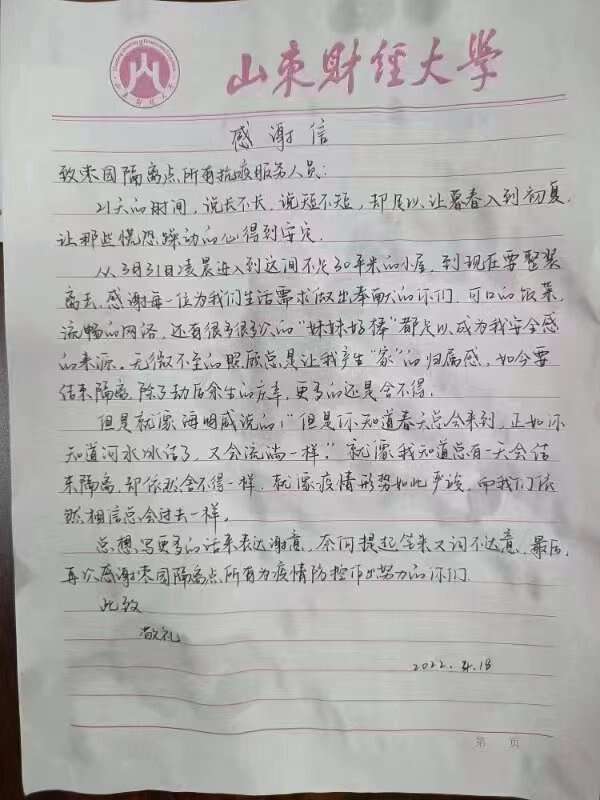 山东财经大学
感谢信
致来园隔离点所有抗疫服务人员:
21天的时间，说长不长，说短不短，却足以让暮春入到初夏，
让那些慌恐躁动的心得到安定。
从3月31日凌晨进入到这间不足30平米的小屋，到现在要整装
离去，感谢每一位为我们生活需求做出奉献的你们，可口的饭菜，
流畅的网络，还有很多很多次的“妹妹好棒”都足以成为我安全感
的来源。无微不至的照顾总是让我产生“家”的归属感，如今要
结束隔离，除了劫后余生的庆幸，更多的还是舍不得。
但是就像海明威说的:“但是你知道春天总会来到，正如你
知道河水冰结了，又会流淌一样。”就像我知道总有一天会结
束隔离，却依然舍不得一样，就像疫情形势如此严峻，而我们依
然相信总会过去一样。
总想写更多的话来表达谢意，奈何提起笔来又词不达意，最后，
再次感谢来园隔离点所有为疫情防控作出努力的你们
此致
敬礼
2022.4.18
第 页